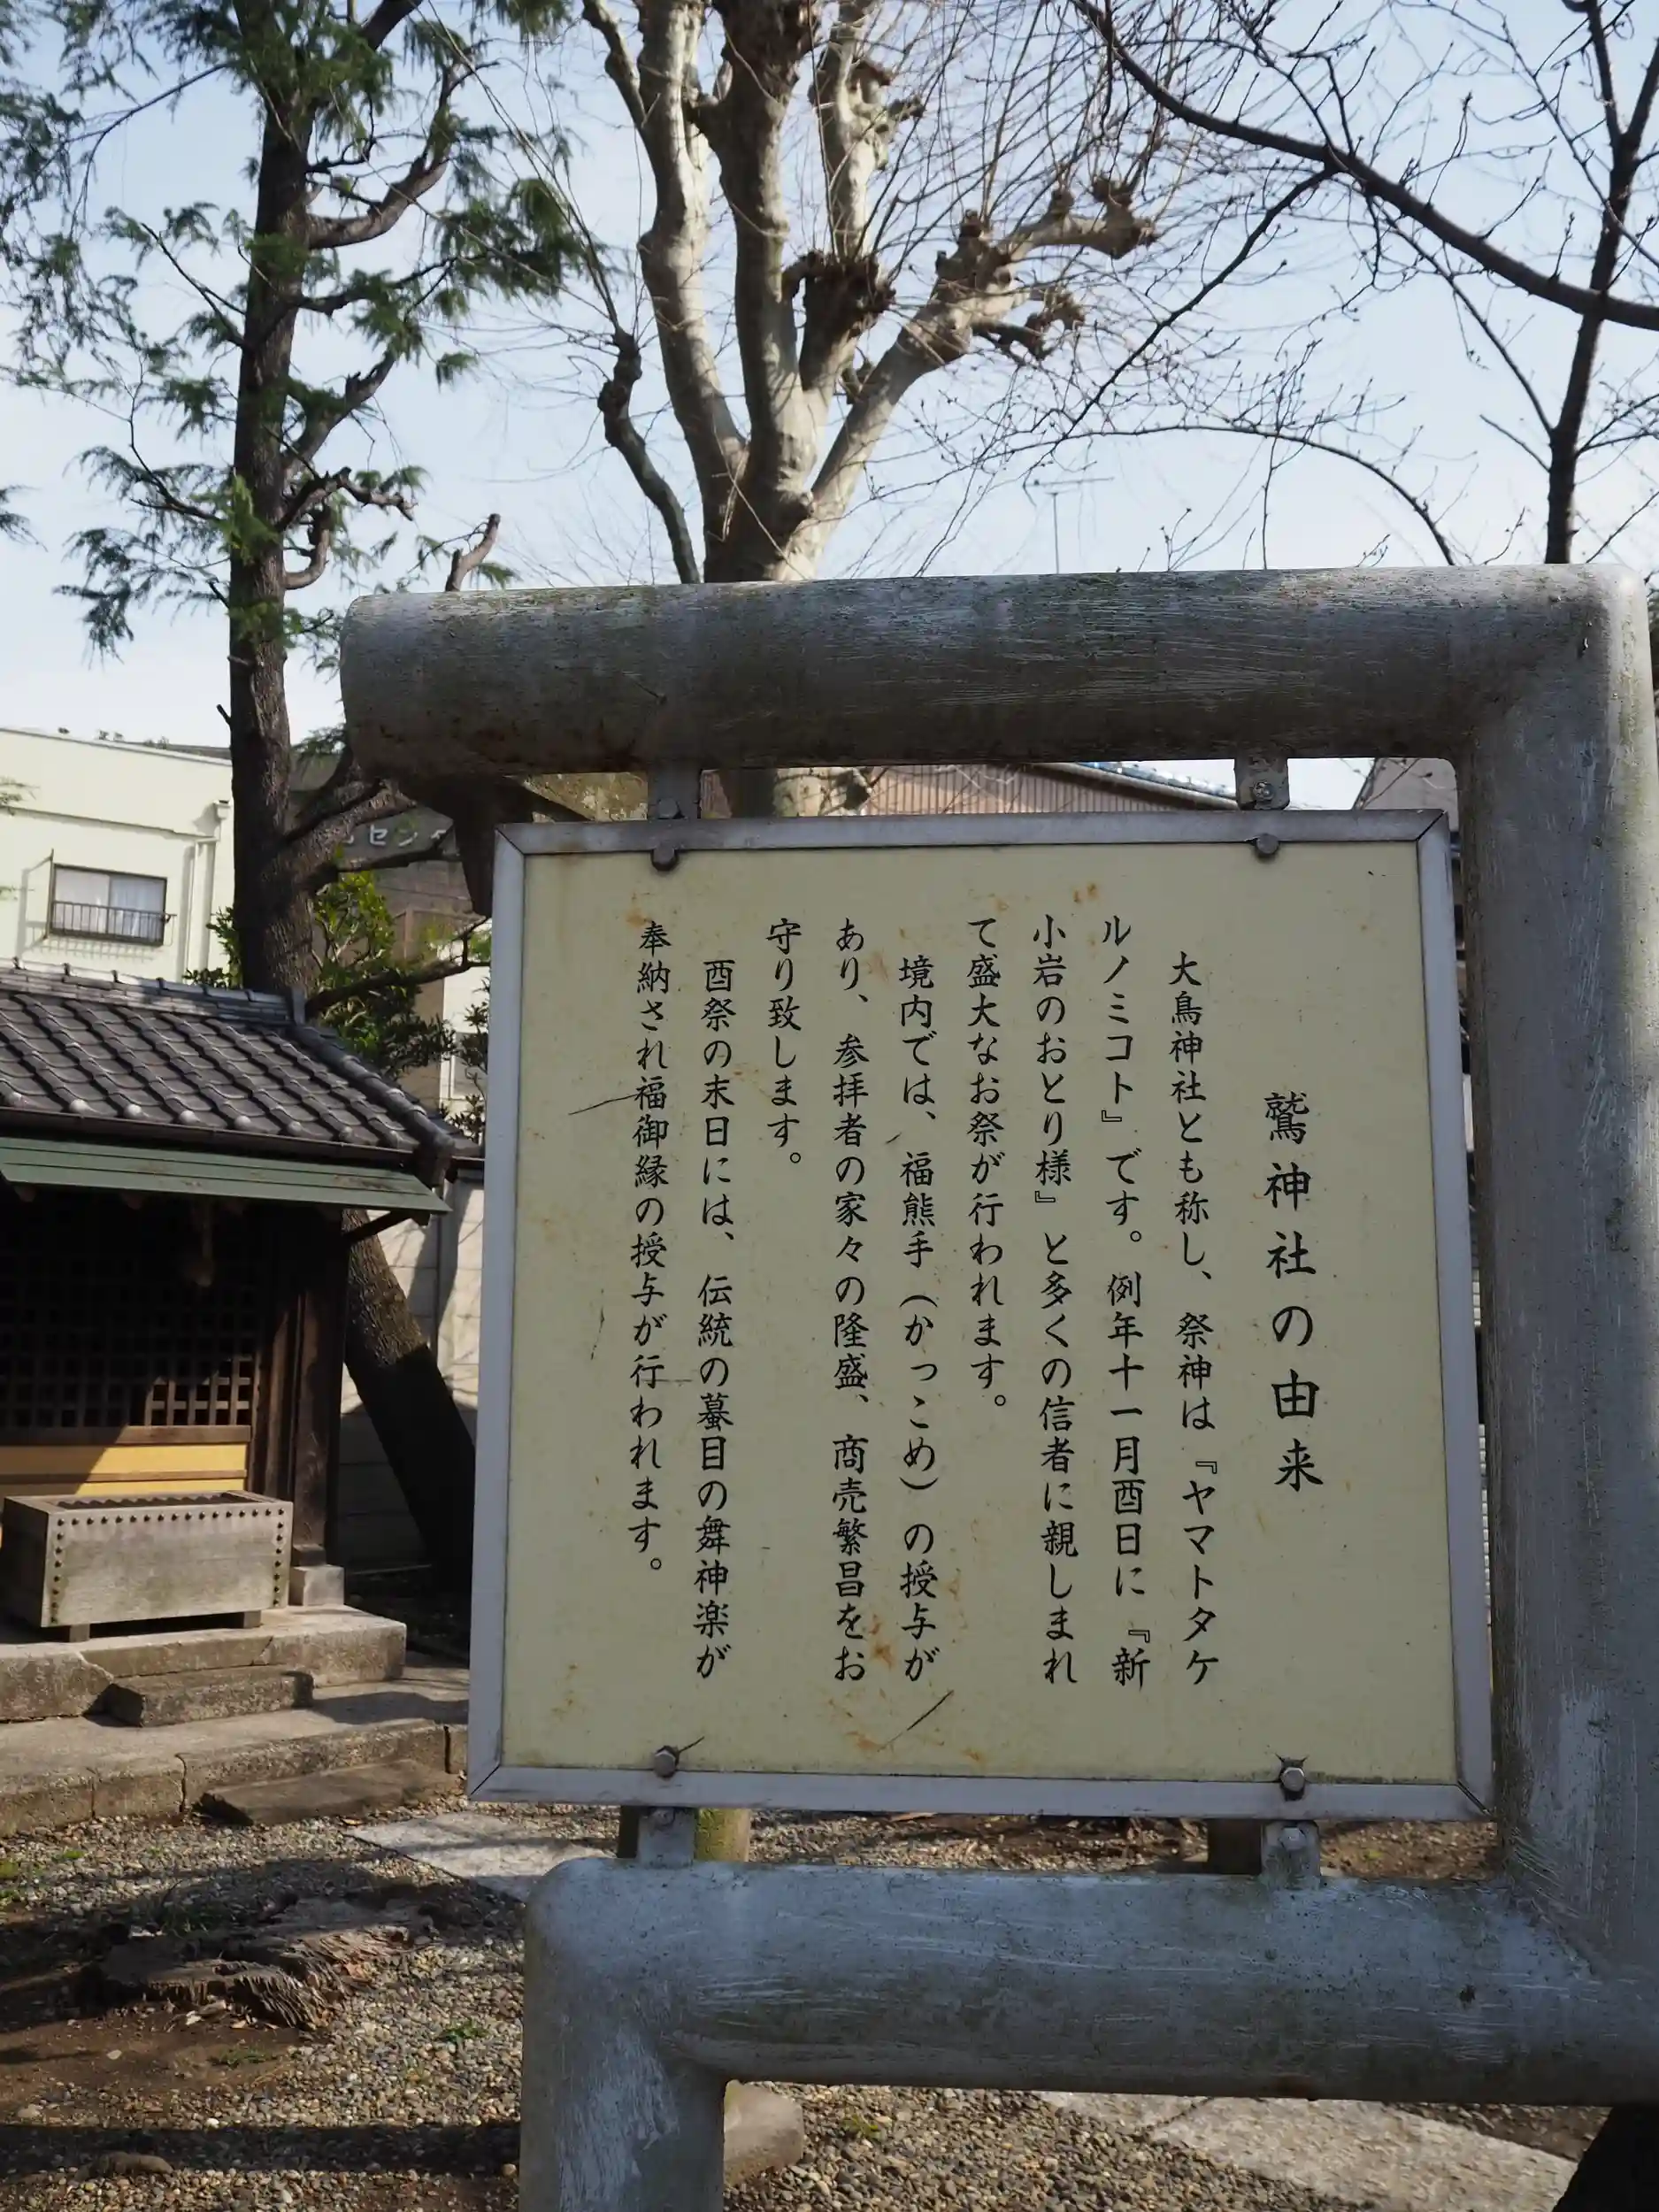 鷲神社の由来
大鳥神社とも称し、祭神は『ヤマトタケ
ルノミコト』です。例年十一月酉日に『新
小岩のおとり様』と多くの信者に親しまれ
て盛大なお祭が行われます。
境内では、福熊手(かっこめ)の授与が
あり、参拝者の家々の隆盛、商売繁昌をお
守り致します。
酉祭の末日には、伝統の蟇目の舞神楽が
奉納され福御縁の授与が行われます。
センタ